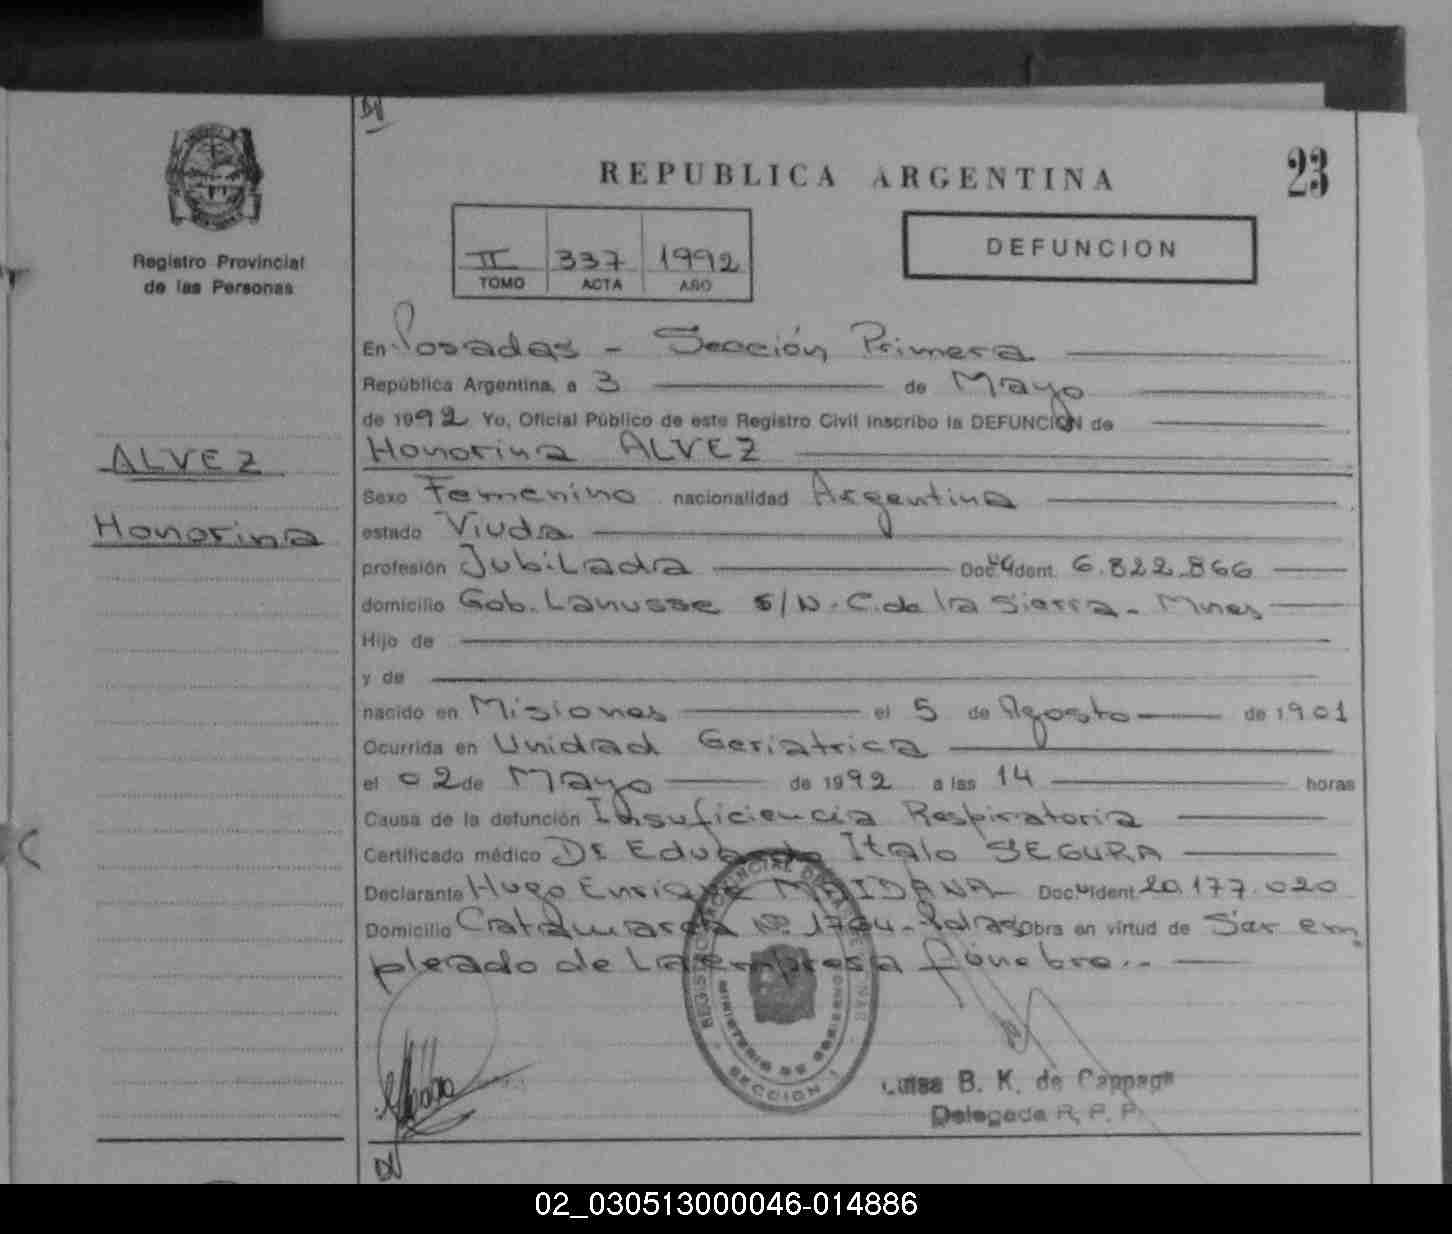 REPUBLICA ARGENTINA
23
Registro Provincial
de las Personas
II 337 1992
TOMO ACTA AÑO
DEFUNCION
En Posadas - Sección Primera
República Argentina, a 3 de Mayo
de 1992 Yo, Oficial Público de este Registro Civil inscribo la DEFUNCION de
ALVEZ
Honorina
Honorina ALVEZ
Sexo Femenino nacionalidad Argentina
estado Viuda
profesión Jubilada Doc. Ident. 6.822.866
domicilio Gob. Lanusse s/N. C. de la Sierra - Mnes
Hijo de
y de
nacido en Misiones el 5 de Agosto de 1901
Ocurrida en Unidad Geriatrica
el 02 de Mayo de 1992 a las 14 horas
Causa de la defunción Insuficiencia Respiratoria
Certificado médico Dr Eduardo Italo SEGURA
Declarante Hugo Enrique MAIDANA Doc. Ident. 20.177.020
Domicilio Catamarca Nº Obra en virtud de Ser em
pleado de La empresa fúnebre..
REGISTRO PROVINCIAL DE LAS PERSONAS
MINISTERIO DE GOBIERNO
SECCION 1
Luisa B. K. de Cappaga
Delegada R. P. P.
02_030513000046-014886